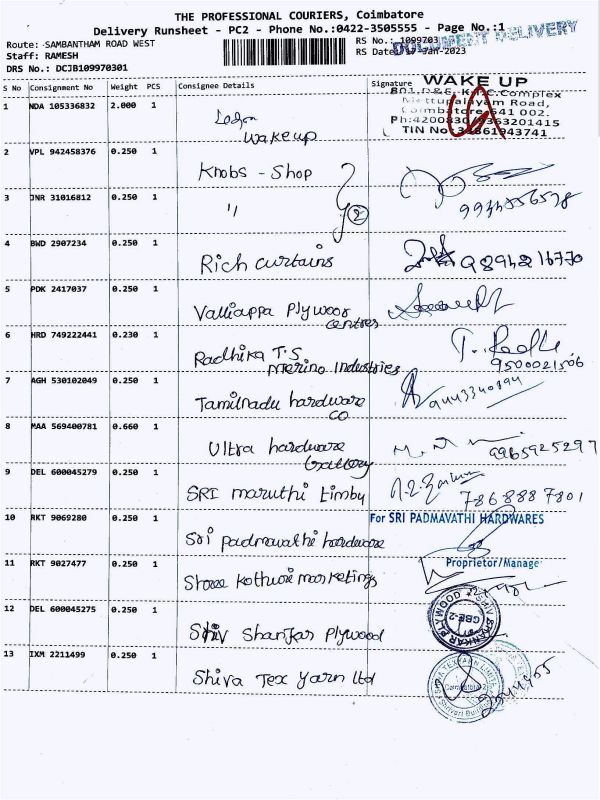 THE PROFESSIONAL COURIERS, Coimbatore
Delivery Runsheet - PC2 - Phone No.:0422-3505555 - Page No.:1
Route: SAMBANTHAM ROAD WEST
RS No.: 1099703
DOCUMENT DELIVERY
Staff: RAMESH
RS Date: 17-Jan-2023
DRS No.: DCJB109970301
S No Consignment No Weight PCS Consignee Details Signature
WAKE UP
801, D&C, K.C.Complex
Mettupalayam Road,
Coimbatore 641 002.
TIN No
1 NDA 105336832 2.000 1
wakeup
2 VPL 942458376 0.250 1 Knobs - Shop
3 JNR 31016812 0.250 1 " 2
4 BWD 2907234 0.250 1 Rich curtains
5 PDK 2417037 0.250 1 Valliappa Plywoor
centres
6 HRD 749222441 0.230 1 Radhika T.S
Merino Industries
9500021506
7 AGH 530102049 0.250 1 Tamilnadu hardware
co
9443340894
8 MAA 569400781 0.660 1 Ultra hardware
9965925297
9 DEL 600045279 0.250 1 SRI maruthi timby
7868887801
10 RKT 9069280 0.250 1 Sri padmavathi hardware
For SRI PADMAVATHI HARDWARES
Proprietor/Manager
11 RKT 9027477 0.250 1 Shree kothari marketings
12 DEL 600045275 0.250 1 Shiv Shankar Plywood
SHIV SHANKAR PLYWOOD
CBE-2
13 IXM 2211499 0.250 1 Shiva Tex Yarn ltd
Coimbatore-2